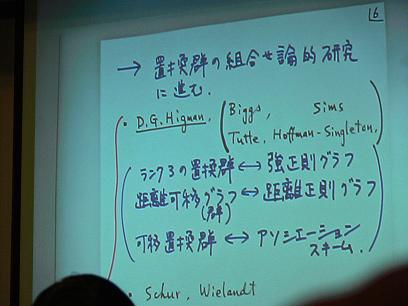 16
→ 置換群の組合せ論的研究
に進む.
• D.G.Higman, (Biggs, Sims
Tutte, Hoffman-Singleton,)
(ランク3の置換群 ↔ 強正則グラフ
距離可移グラフ ↔ 距離正則グラフ
(群)
可移置換群 ↔ アソシエーション
スキーム.)
• Schur, Wielandt